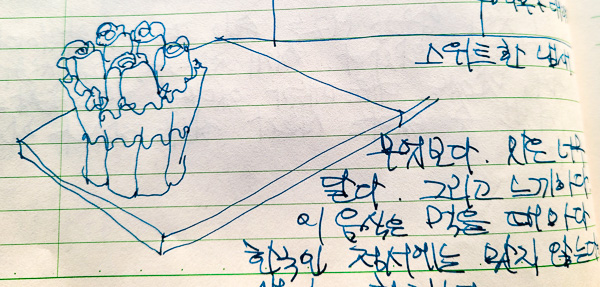 스위트한
무엇보다. 맛은 너무
달다. 그리고 느끼하다
이 음식은 먹을 때마다
한국인 정서에는 맞지 않는다